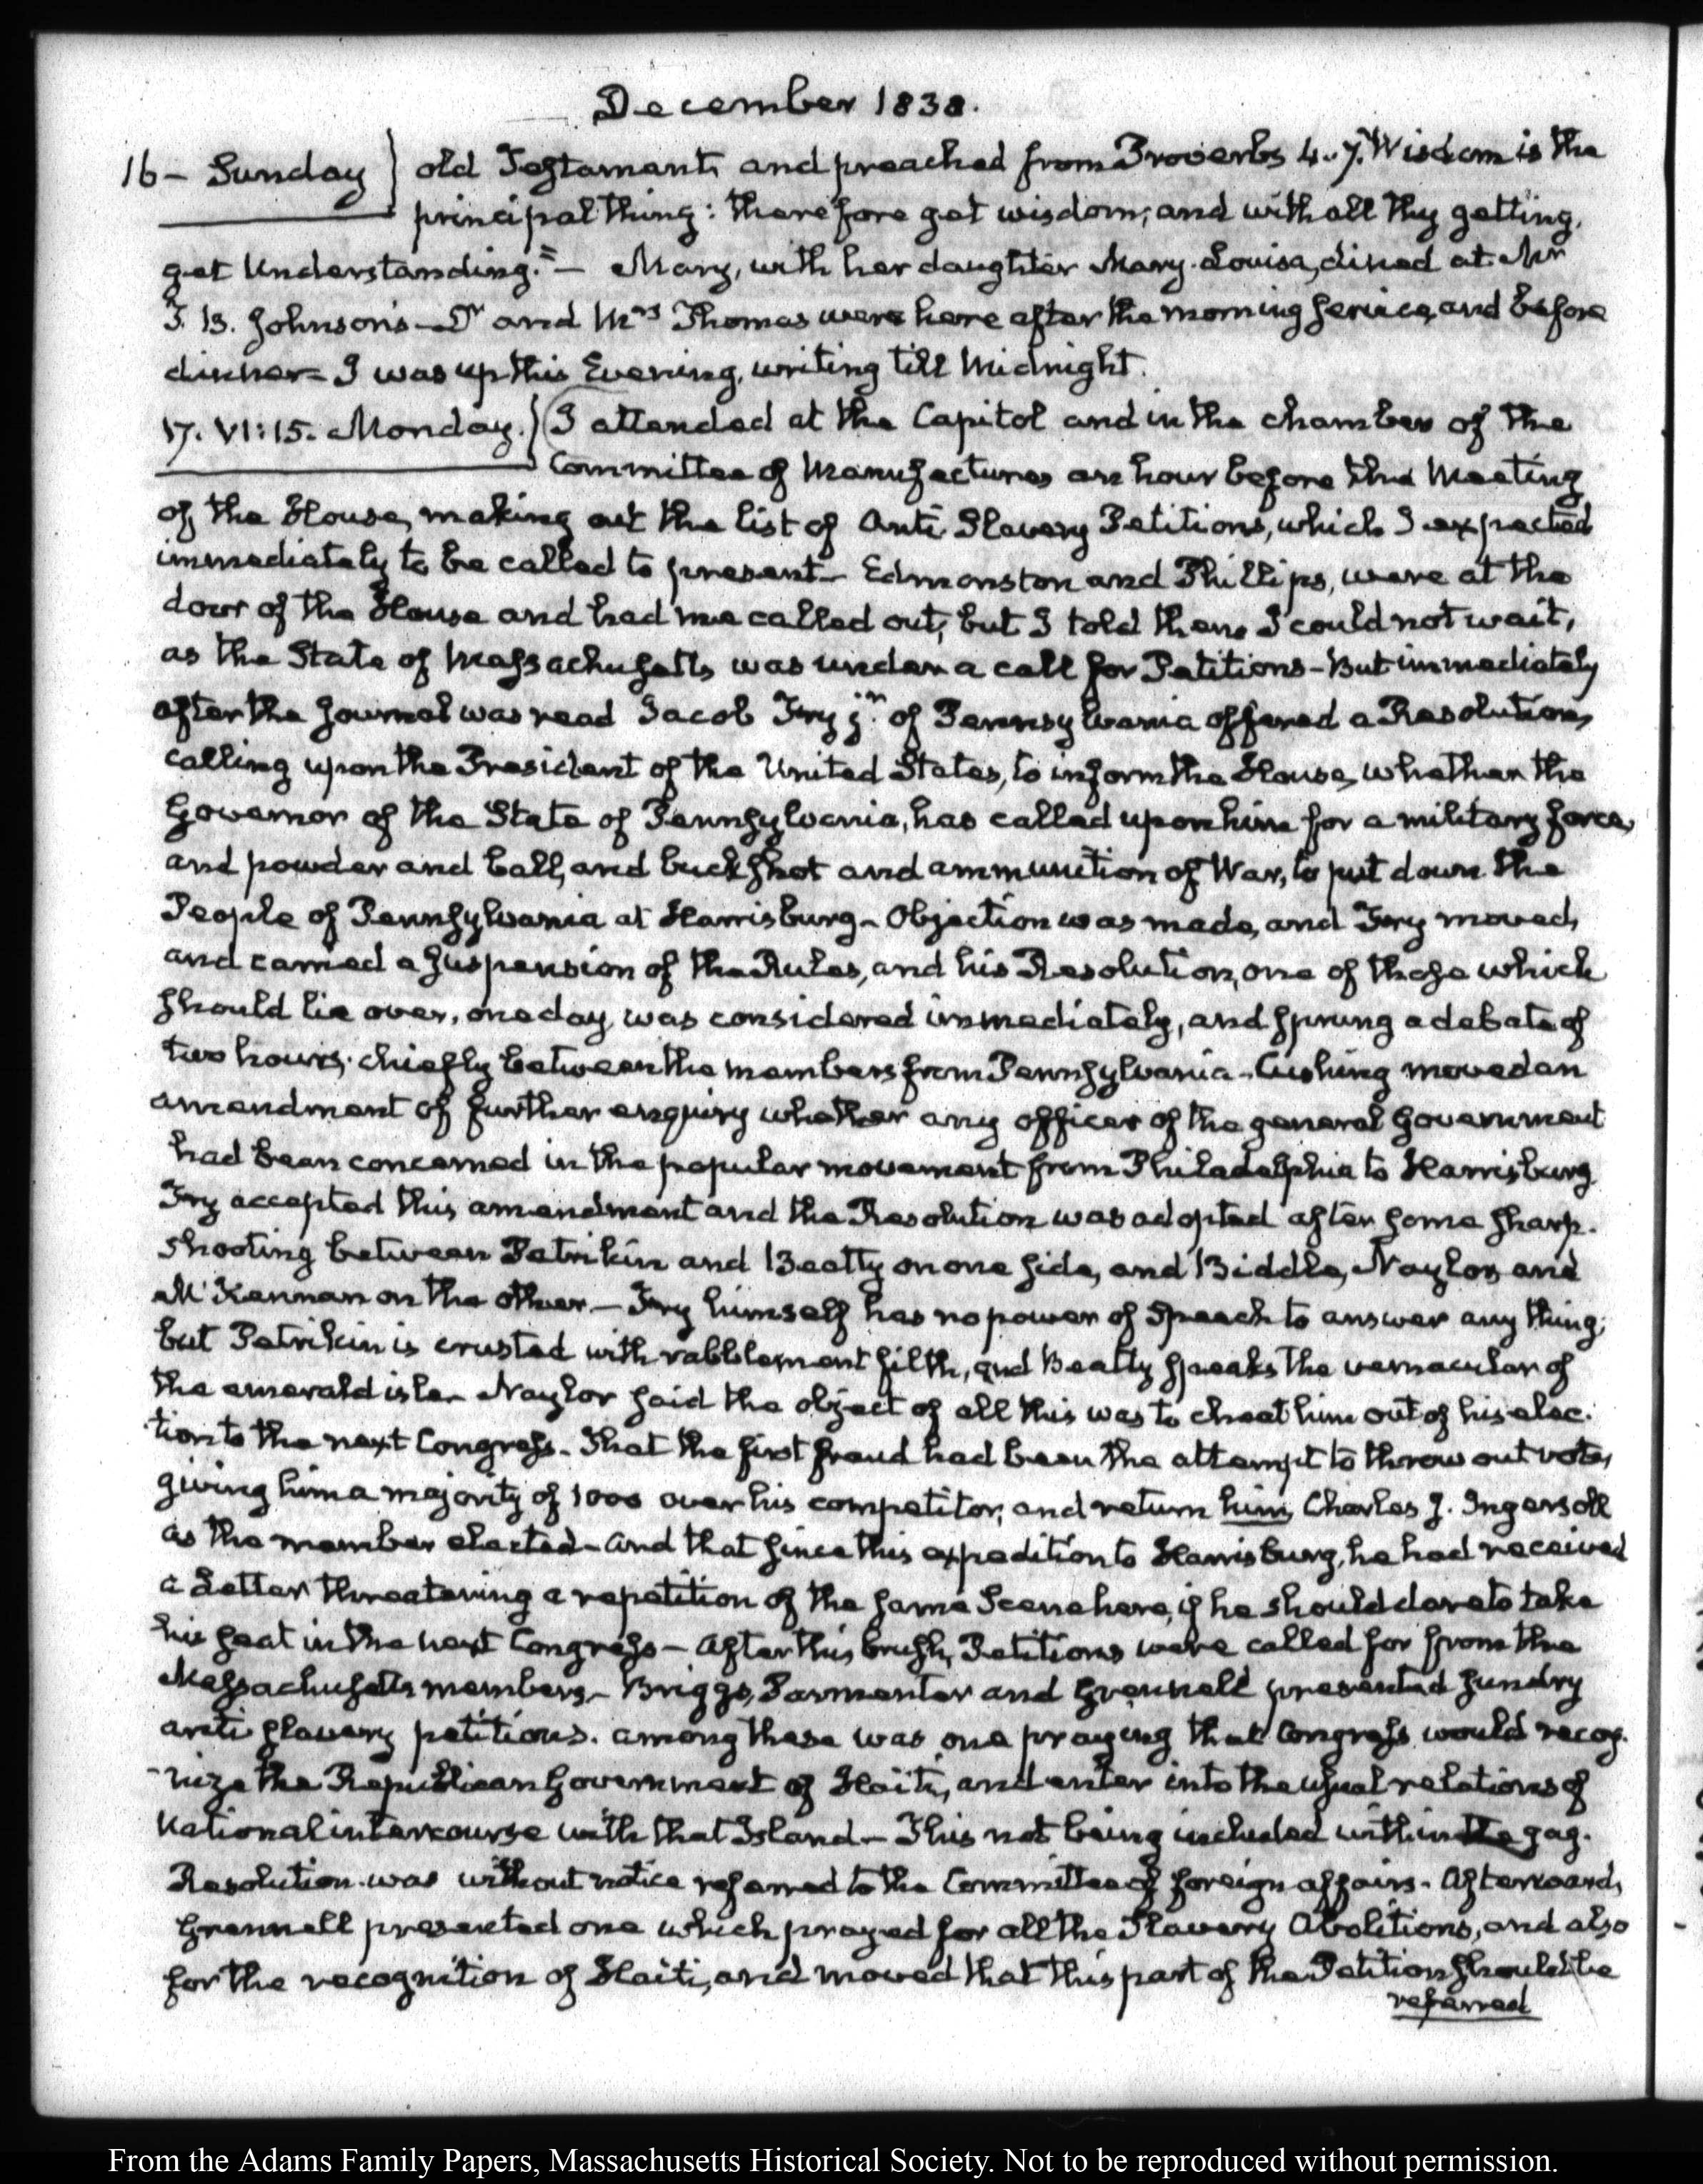 December 1838.
16 – Sunday } old Testament, and preached from Proverbs 4. 7. "Wisdom is the
principal thing: therefore get wisdom; and with all thy getting,
get Understanding." – Mary, with her daughter Mary-Louisa, dined at Mr
T. B. Johnson's – Dr and Mrs Thomas were here after the morning service, and before
dinner – I was up this Evening, writing till Midnight.
17. VI:15. Monday. } I attended at the Capitol and in the chamber of the
Committee of Manufactures an hour before the Meeting
of the House, making out the list of Anti Slavery Petitions, which I expected
immediately to be called to present – Edmonston and Phillips, were at the
door of the House and had me called out; but I told them I could not wait,
as the State of Massachusetts was under a call for Petitions – But immediately
after the Journal was read Jacob Fry jr. of Pennsylvania offered a Resolution,
calling upon the President of the United States, to inform the House, whether the
Governor of the State of Pennsylvania, has called upon him for a military force,
and powder and ball, and buckshot and ammunition of War, to put down the
People of Pennsylvania at Harrisburg – Objection was made, and Fry moved,
and carried a suspension of the Rules, and his Resolution, one of those which
should lie over, one day, was considered immediately, and sprung a debate of
two hours; chiefly between the members from Pennsylvania – Cushing moved an
amendment of further enquiry whether any officer of the general Government
had been concerned in the popular movement from Philadelphia to Harrisburg.
Fry accepted this amendment and the Resolution was adopted after some sharp-
shooting between Petrikin and Beatty on one side, and Biddle, Naylor and
McKennan on the other – Fry himself has no power of Speech to answer any thing;
but Petrikin is crusted with rabblement filth, and Beatty speaks the vernacular of
the emerald isle – Naylor said the object of all this was to cheat him out of his elec-
tion to the next Congress – That the first fraud had been the attempt to throw out votes,
giving him a majority of 1000 over his competitor, and return him, Charles J. Ingersoll
as the member elected – and that since this expedition to Harrisburg, he had received
a Letter threatening a repetition of the same Scene here, if he should dare to take
his seat in the next Congress – After this brush, Petitions were called for from the
Massachusetts members – Briggs, Parmenter and Grennell presented sundry
anti slavery petitions. among these was one praying that Congress would recog-
-nize the Republican Government of Haiti, and enter into the usual relations of
National intercourse with that Island – This not being included within the gag-
Resolution was without notice referred to the Committee of foreign affairs – Afterwards,
Grennell presented one which prayed for all the Slavery Abolitions, and also
for the recognition of Haiti, and moved that this part of the Petition should be
referred
From the Adams Family Papers, Massachusetts Historical Society. Not to be reproduced without permission.